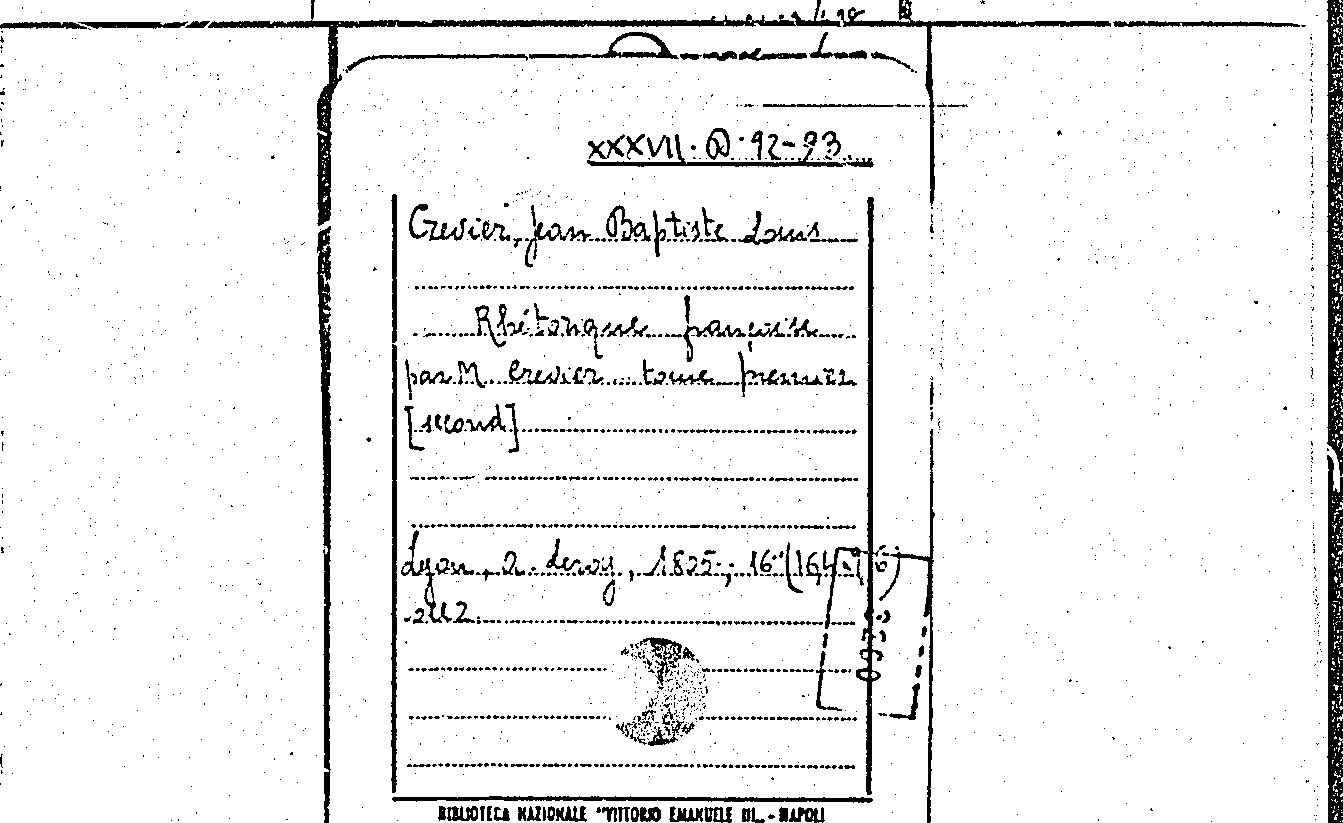 XXXVII. Q. 92-93
Crevier, Jean Baptiste Louis
Rhétorique françoise
par M. Crevier tome premier
[second]
Lyon, a. Leroy, 1805; 16° (16,
BIBLIOTECA NAZIONALE "VITTORIO EMANUELE III„ - NAPOLI